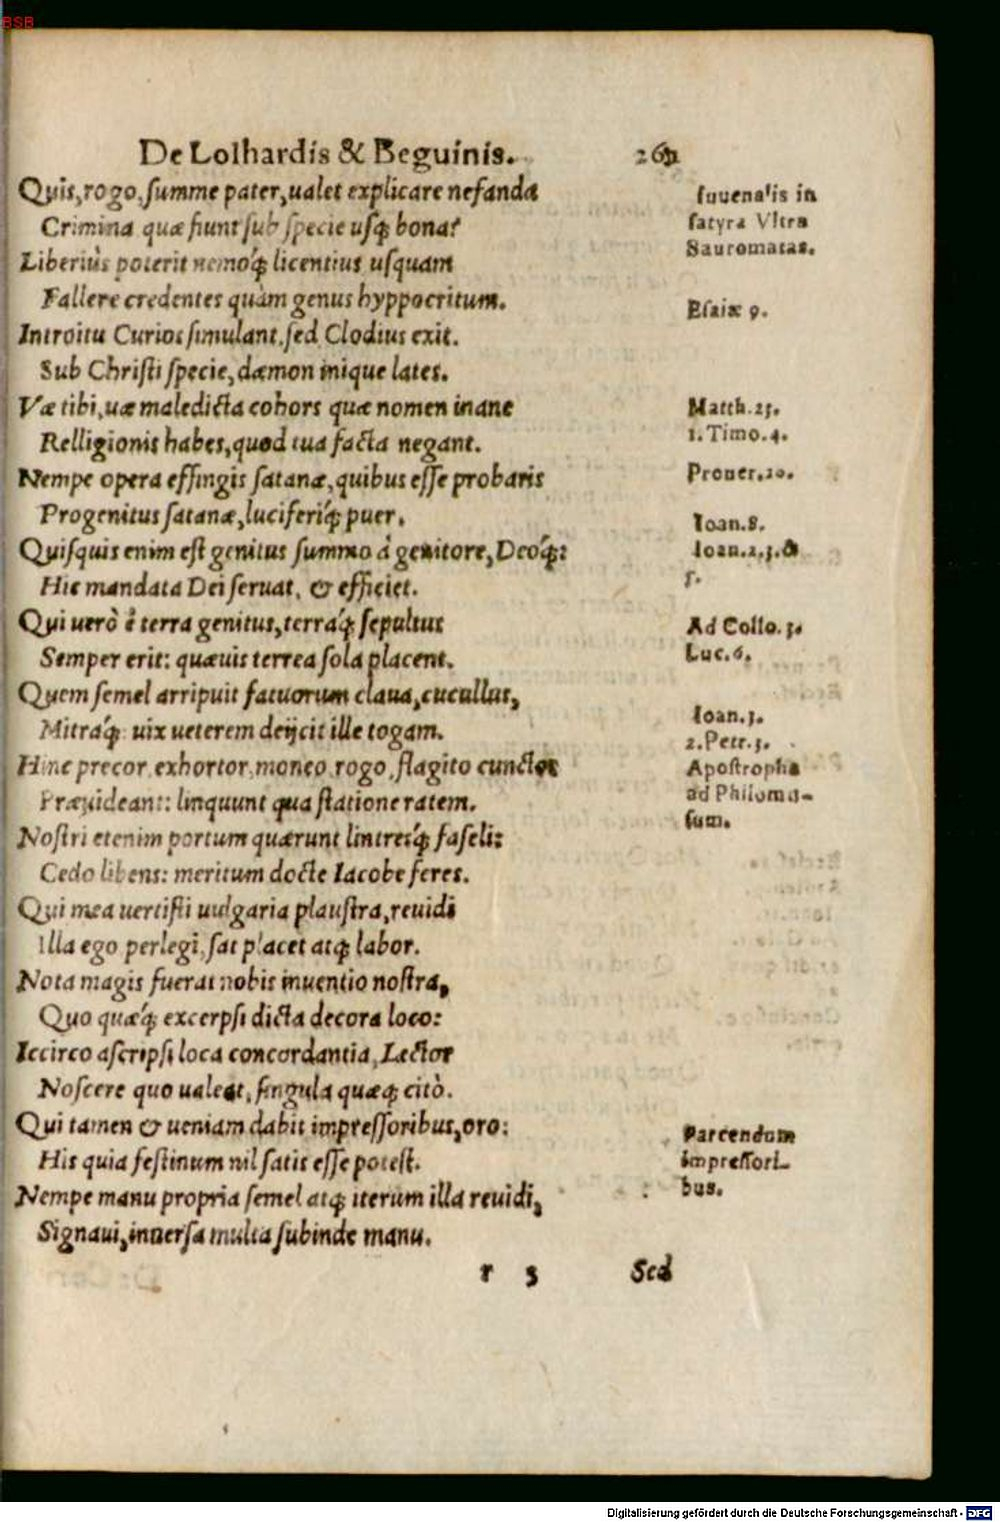 BSB
De Lolhardis & Beguinis.
Quis, rogo, summe pater, ualet explicare nefanda
Crimina quæ fiunt sub specie usq; bona?
Liberiùs poterit nemoq́; licentius usquam
Fallere credentes quàm genus hyppocritum.
Introitu Curios simulant, sed Clodius exit.
Sub Christi specie, dæmon inique lates.
Væ tibi, uæ maledicta cohors quæ nomen inane
Relligionis habes, quod tua facta negant.
Nempe opera effingis satanæ, quibus esse probaris
Progenitus satanæ, luciferiq́; puer.
Quisquis enim est genitus summo à genitore, Deoq́;:
Hic mandata Dei seruat, & efficiet.
Qui uerò è terra genitus, terraq́; sepultus
Semper erit: quæuis terrea sola placent.
Quem semel arripuit fatuorum claua, cucullus,
Mitraq́; uix ueterem deijcit ille togam.
Hinc precor, exhortor, moneo, rogo, flagito cunctos
Præuideant: linquunt qua statione ratem.
Nostri etenim portum quærunt lintresq́; faseli:
Cedo libens: meritum docte Iacobe feres.
Qui mea uertisti uulgaria plaustra, reuidi
Illa ego perlegi, sat placet atq; labor.
Nota magis fuerat nobis inuentio nostra,
Quo quæq́; excerpsi dicta decora loco:
Iccirco ascripsi loca concordantia, Lector
Noscere quo ualeat, singula quæq; citò.
Qui tamen & ueniam dabit impressoribus, oro:
His quia festinum nil satis esse potest.
Nempe manu propria semel atq; iterum illa reuidi,
Signaui, inuersa multa subinde manu.
r 3 Sed
Iuuenalis in
satyra Vltra
Sauromatas.
Esaiæ 9.
Matth. 23.
1. Timo. 4.
Prouer. 20.
Ioan. 8.
Ioan. 2. 3. &
5.
Ad Collo. 3.
Luc. 6.
Ioan. 3.
2. Petr. 3.
Apostropha
ad Philomu-
sum.
Parcendum
impressori-
bus.
Digitalisierung gefördert durch die Deutsche Forschungsgemeinschaft - DFG